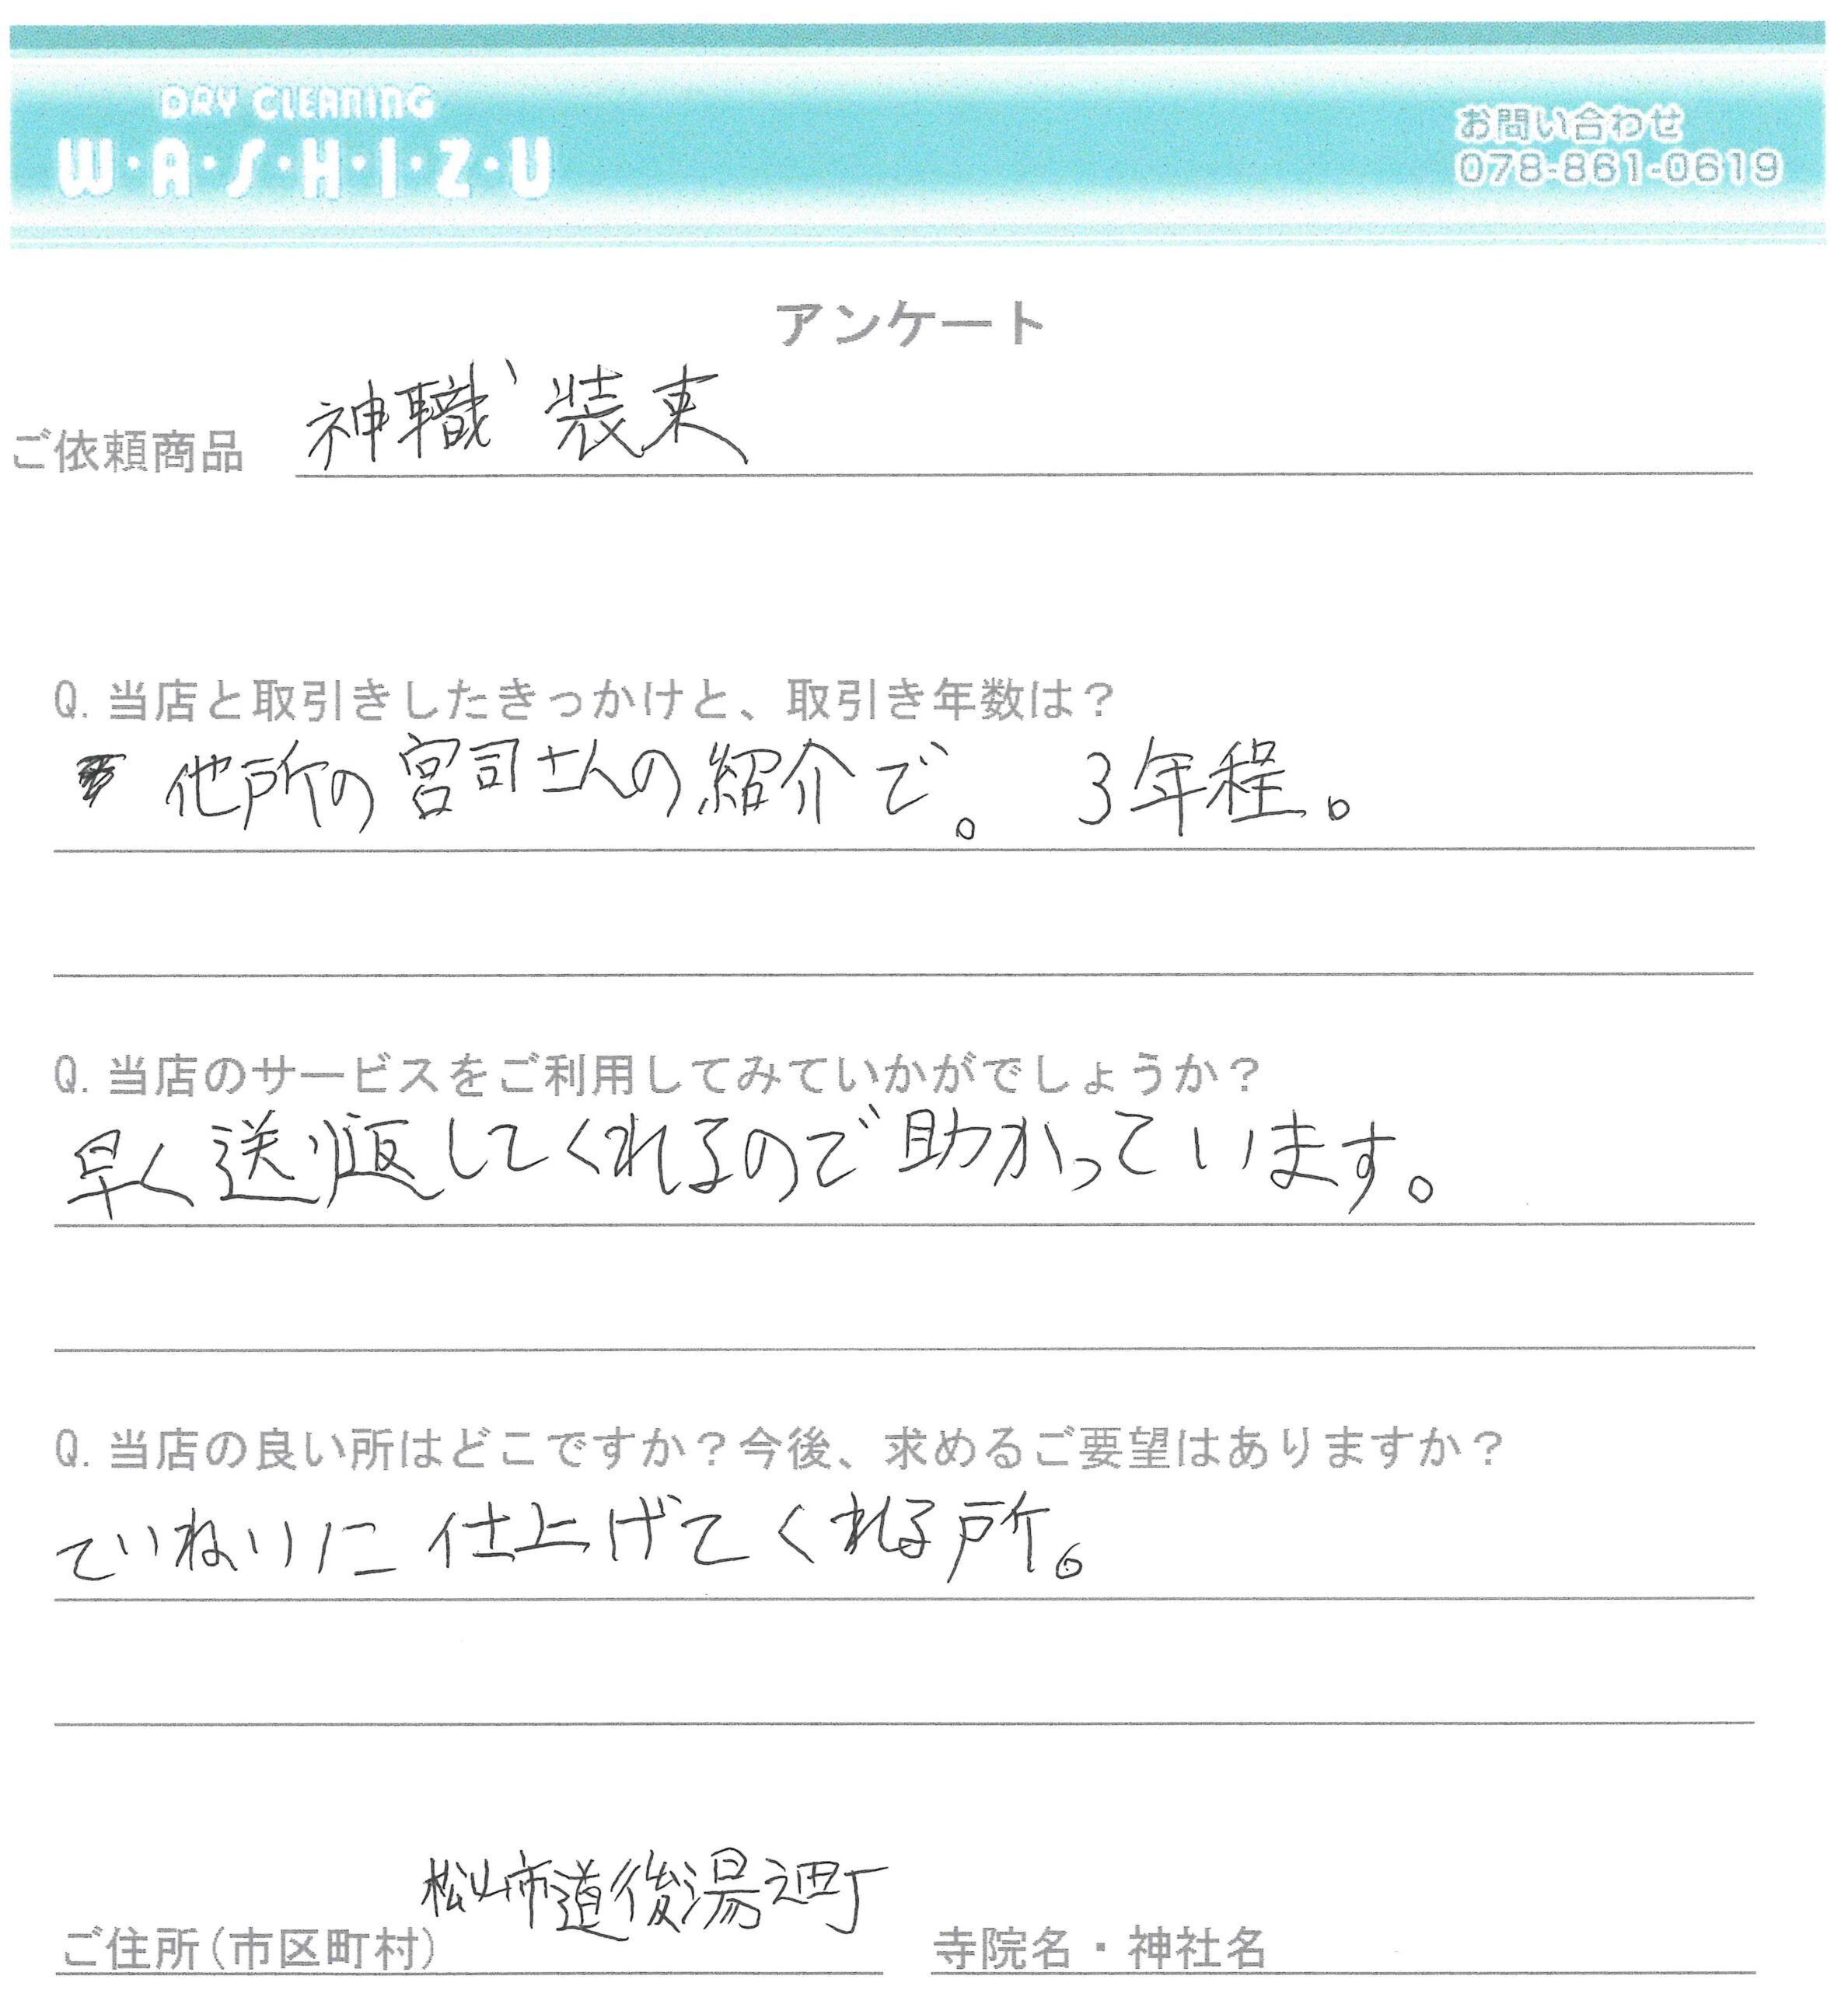 DRY CLEANING
W・A・S・H・I・Z・U
お問い合わせ
078-861-0619
アンケート
ご依頼商品 神職 装束
Q. 当店と取引きしたきっかけと、取引き年数は？
他所の宮司さんの紹介で。 3年程。
Q. 当店のサービスをご利用してみていかがでしょうか？
早く送り返してくれるので助かっています。
Q. 当店の良い所はどこですか？今後、求めるご要望はありますか？
ていねいに仕上げてくれる所。
ご住所(市区町村) 松山市道後湯之町
寺院名・神社名